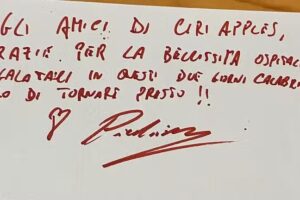 GLI AMICI DI CIRI APPLES,
GRAZIE PER LA BELLISSIMA OSPITAL
GALATACI IN QUESTI DUE GIORNI CALABRI
O DI TORNARE PRESTO !!